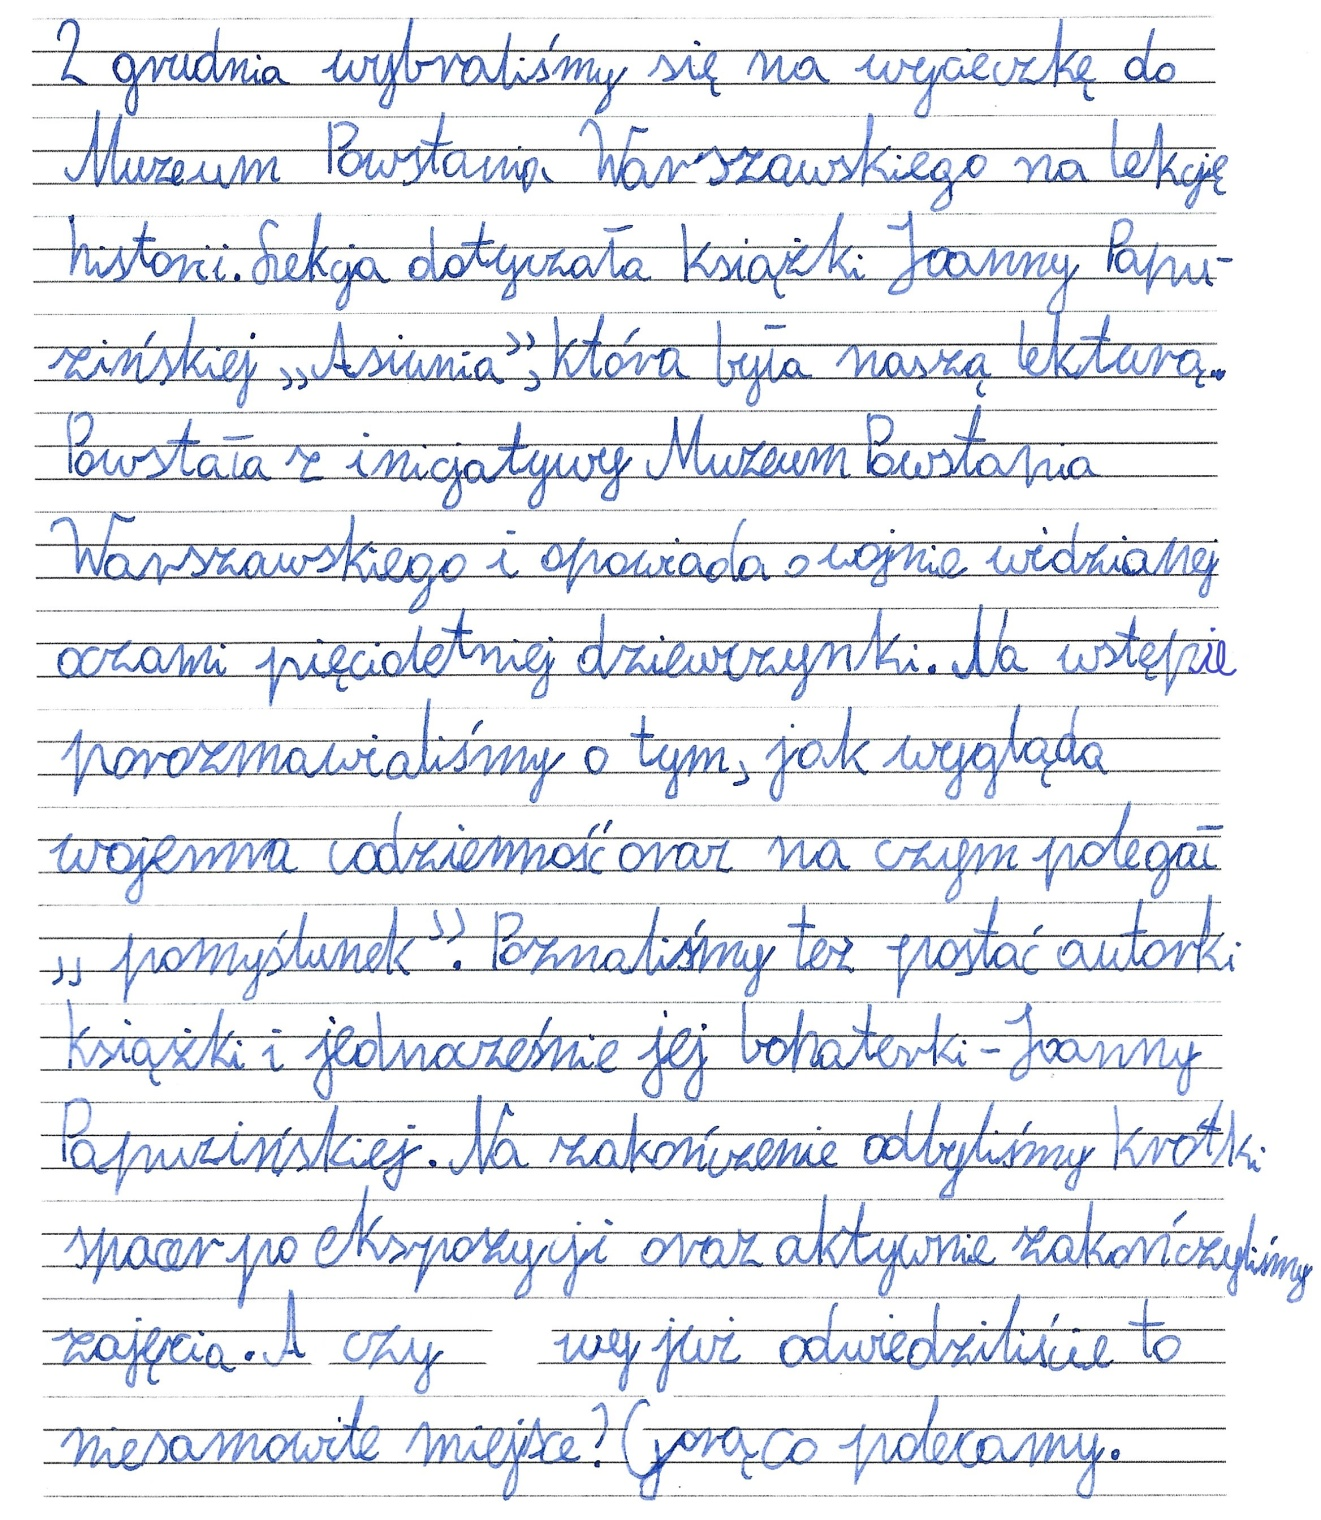 2 grudnia wybraliśmy się na wycieczkę do
Muzeum Powstania Warszawskiego na lekcję
historii. Lekcja dotyczała książki Joanny Papu-
zińskiej „Asiunia”, która była naszą lekturą.
Powstała z inicjatywy Muzeum Powstania
Warszawskiego i opowiada o wojnie widzianej
oczami pięcioletniej dziewczynki. Na wstępie
porozmawialiśmy o tym, jak wygląda
wojenna codzienność oraz na czym polegał
„pomyślunek”. Poznaliśmy też postać autorki
książki i jednocześnie jej bohaterki - Joanny
Papuzińskiej. Na zakończenie odbyliśmy krótki
spacer po ekspozycji oraz aktywnie zakończyliśmy
zajęcia. A czy wy już odwiedziliście to
niesamowite miejsce? Gorąco polecamy.